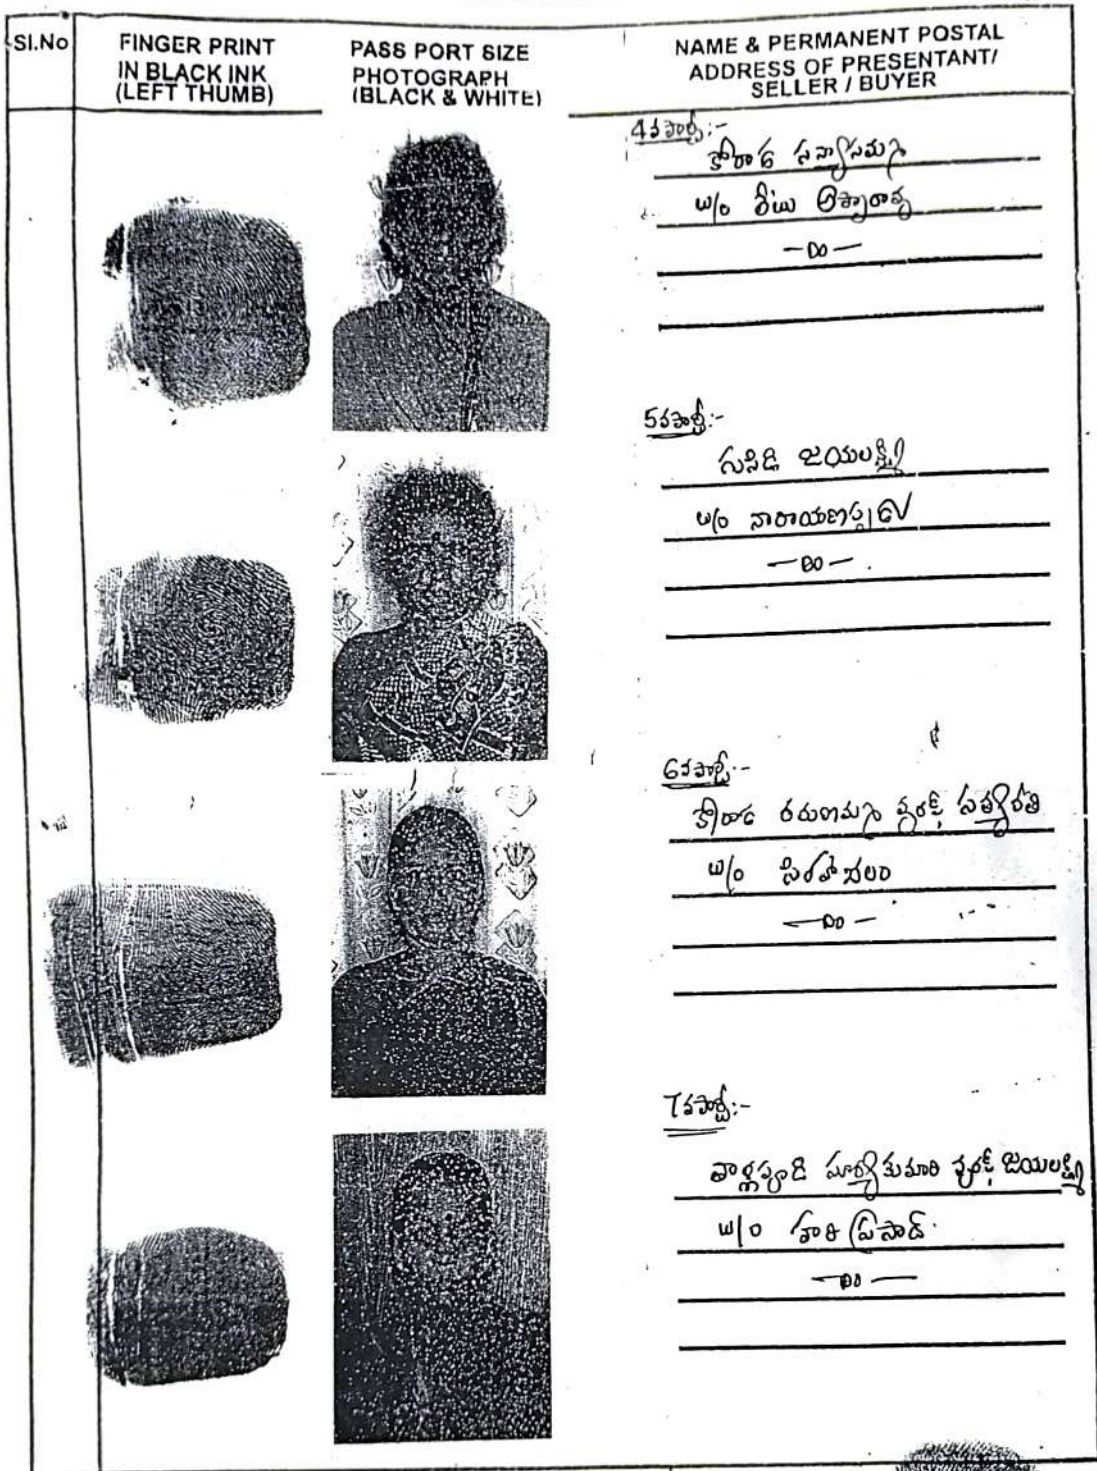 Sl.No
FINGER PRINT
IN BLACK INK
(LEFT THUMB)
PASS PORT SIZE
PHOTOGRAPH
(BLACK & WHITE)
NAME & PERMANENT POSTAL
ADDRESS OF PRESENTANT/
SELLER / BUYER
4వ పార్టీ:-
కోరాడ సన్యాసమ్మ
w/o లేటు అప్పారావు
—do—
5వ పార్టీ:-
గుసిడి జయలక్ష్మి
w/o నారాయణప్పల
—do—
6వ పార్టీ:-
కోరాడ కరుణమ్మ వురఫ్ సత్యవతి
w/o సింహాచలం
—do—
7వ పార్టీ:-
వాళ్లపూడి సూర్యకుమారి వురఫ్ జయలక్ష్మి
w/o హరి ప్రసాద్
—do—